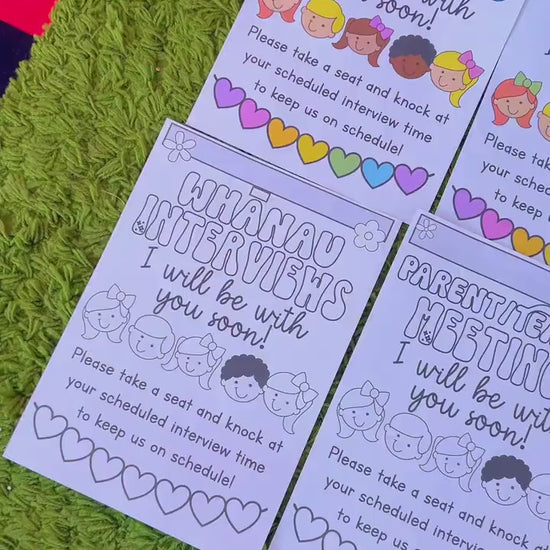 with
you soon!
Please take a seat and knock at
your scheduled interview time
to keep us on schedule!
Please tak
your sched
to keep
WHĀNAU
INTERVIEWS
I will be with
you soon!
Please take a seat and knock at
your scheduled interview time
to keep us on schedule!
PARENT/TEA
MEETING
I will be wit
you soon!
Please take a seat and kno
your scheduled interview
to keep us on sched